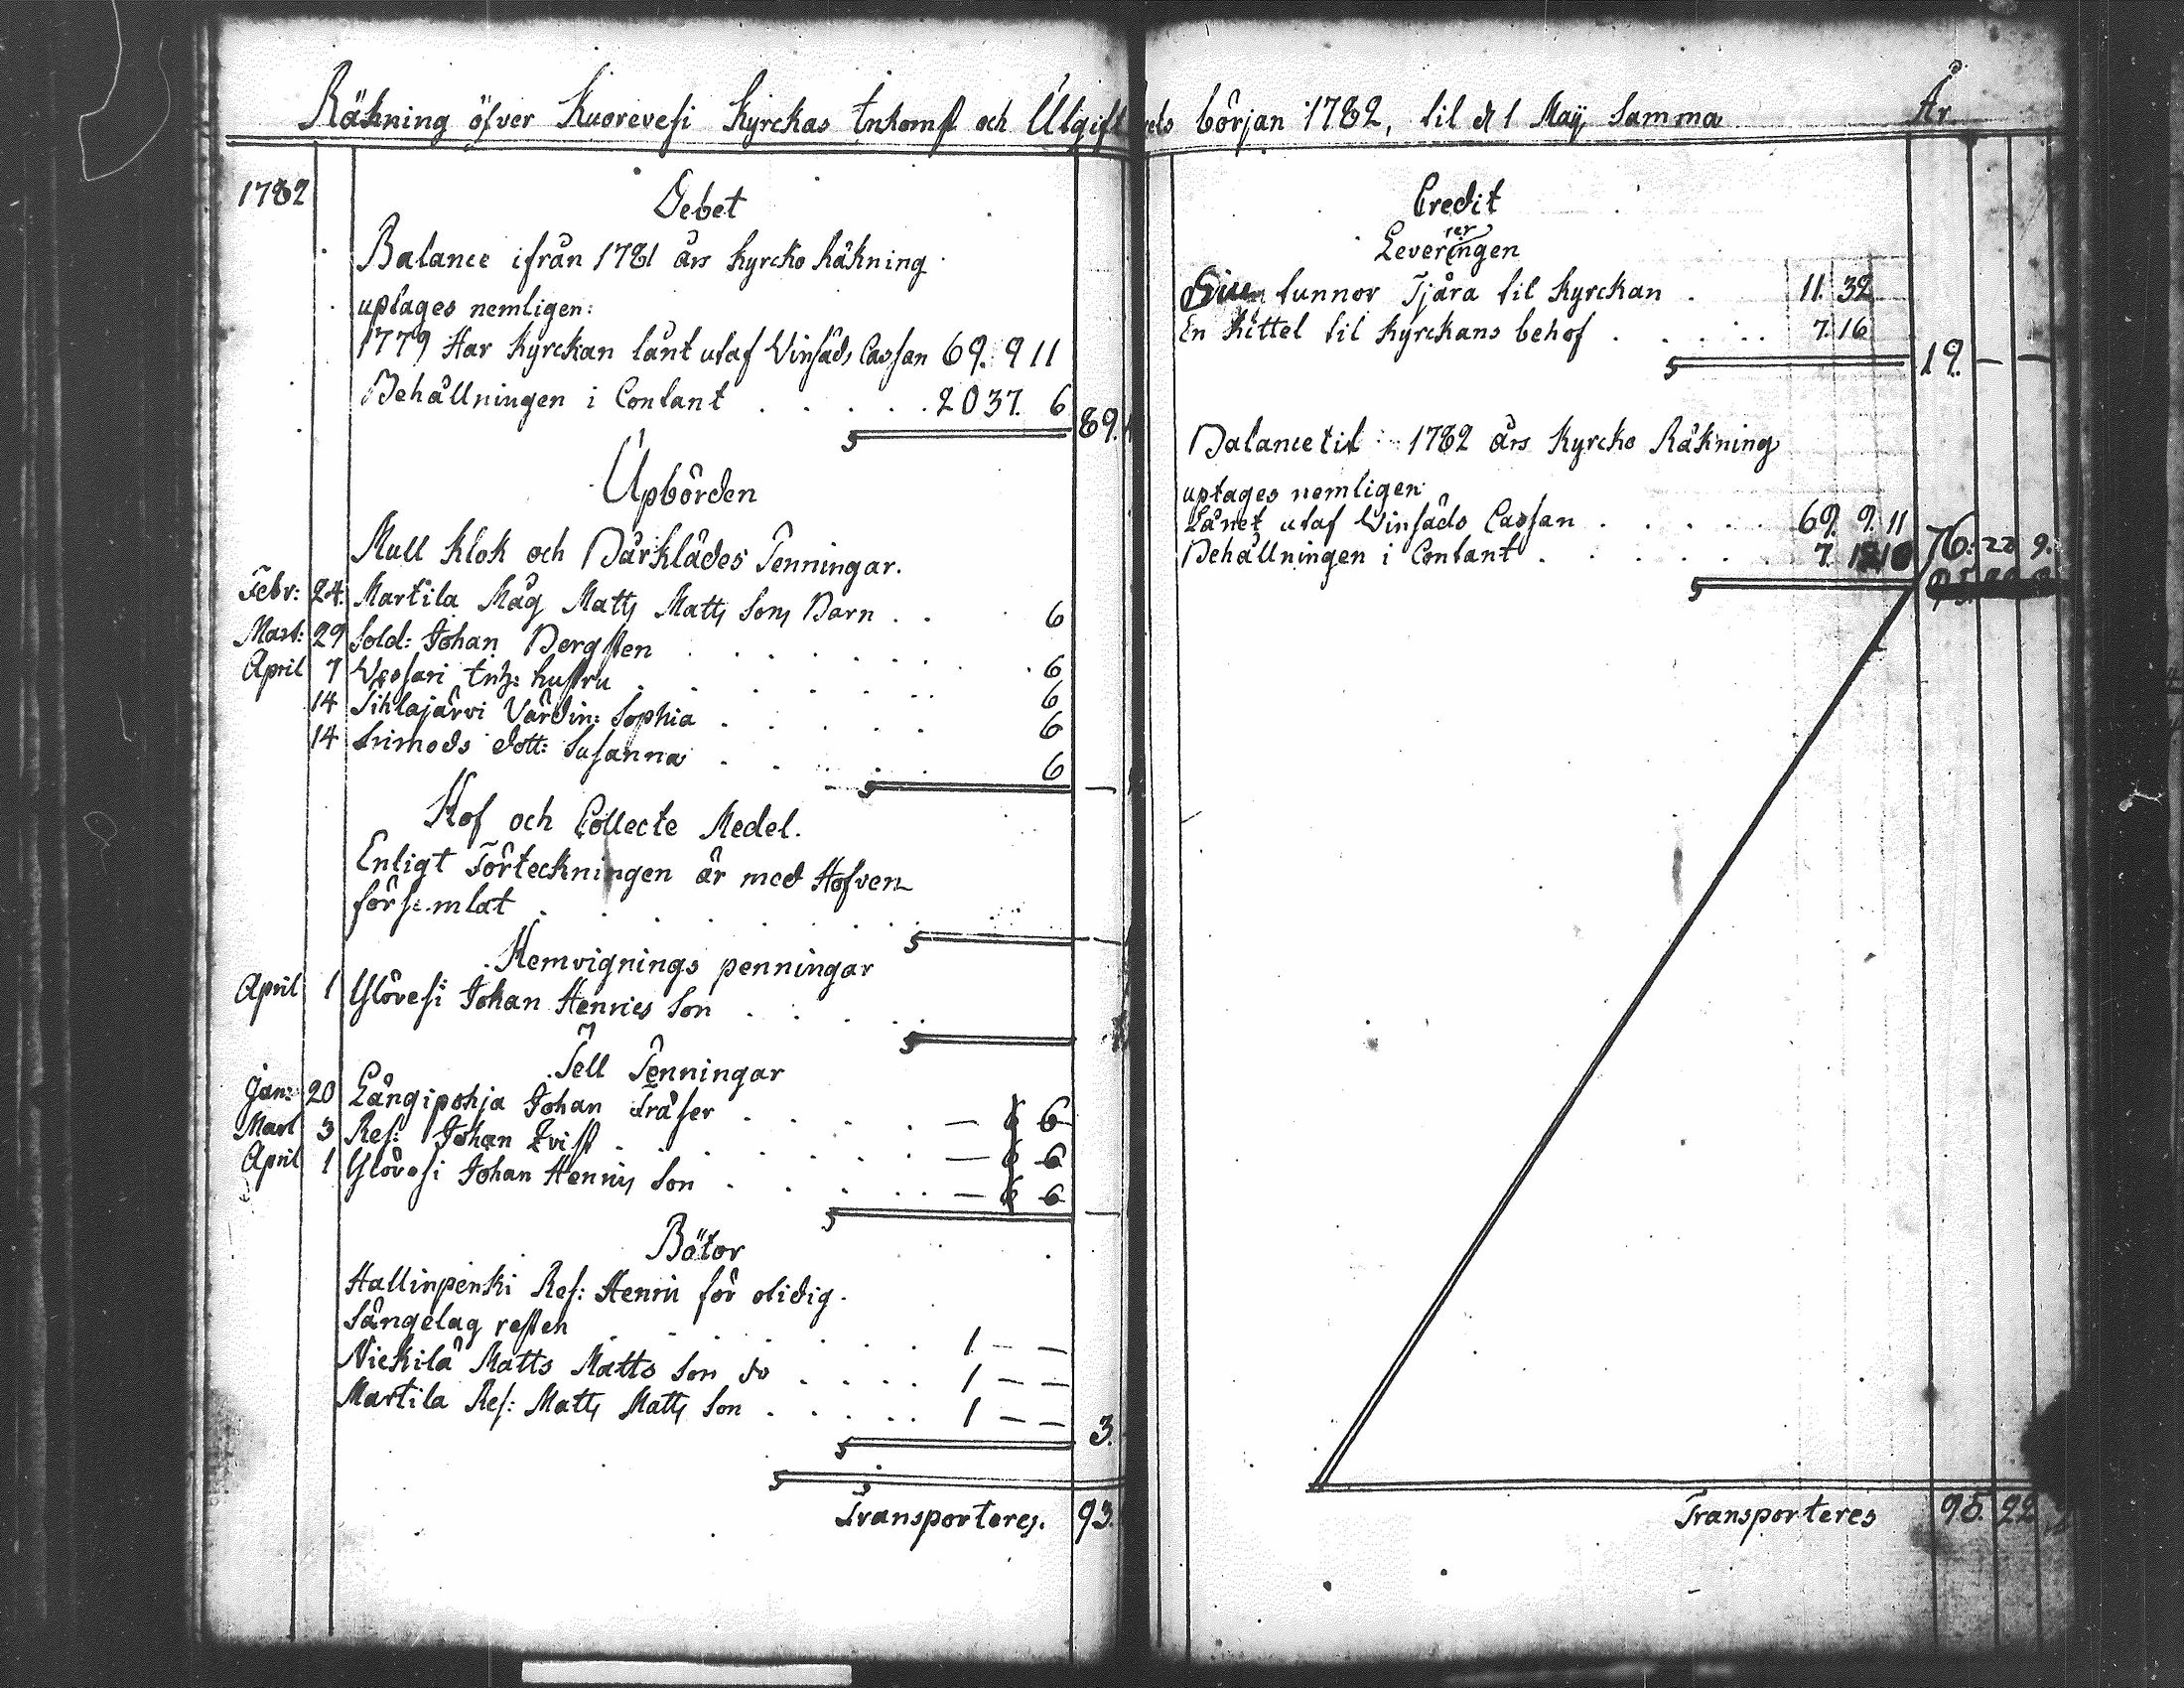 Räkning öfver Kuorevesi Kyrckas Inkomst och Utgift
1782
Debet
Balance ifrån 1781 års Kyrcko Räkning
uptages nemligen:
1779 Har Kyrckan lånt utaf Vinsäds Cassan 69. 9 11
Behållningen i Contant . . . . . 20 37. 6
89.
Upbörden
Mull Klok och Bårklädes Penningar.
Febr: 24. Martila Måg Matts Matts Sons Barn . . 6
Mart: 29 Sold: Johan Bergsten . . . . . . 6
April 7 Vessari Inh: hustru . . . . . . 6
14 Sihlajärvi Värdin: Sophia . . . . . 6
14 dott: Susanna . . . . . . 6
Hof och Collecte Medel.
Enligt Förteckningen är med Hofven
församlat . . . . . . . .
Hemvignings penningar
April 1 Ylövesi Johan Henrics Son . . . .
Tell Penningar
Jan: 20 Långipohja Johan . . . . — 6 6
Mart 3 Ref: Johan Qvist . . . . . . — 6 6
April 1 Ylövesi Johan Henrics Son . . . . . — 6 6
Böter
Hallinpenki Ref: Henric för olidig.
Sängelag resten . . . . . . 1 — —
Nickilä Matts Matts Son do . . . . 1 — —
Martila Ref: Matts Matts Son . . . . . 1 — —
3.
Transporteres. 93.
början 1782, til d 1 Maij samma År
Credit
Leverer[in]gen
tunnor Tjära til Kyrckan . 11. 32
En Kittel til Kyrckans behof . . . . . 7. 16
19. — —
Balance til 1782 års Kyrcko Räkning
uptages nemligen
Lånet utaf Vinsäds Cassan . . . . . 69. 9. 11
Behållningen i Contant . . . . . . 7. 76. 22 9.
Transporteres 95. 22